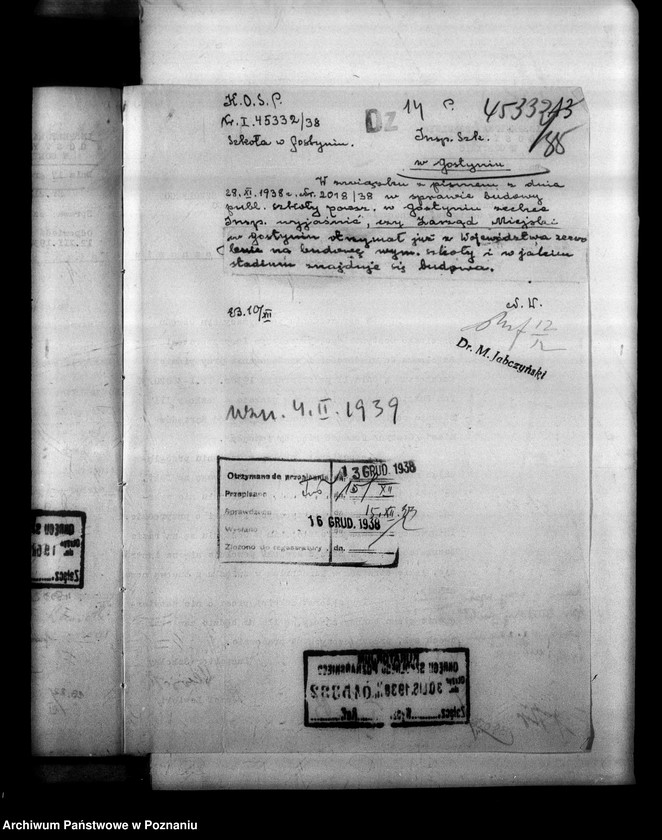 K.O.S.P.
Nr. I. 45332/38
Szkoła w Gostyniu.
Dz
14 p.
Insp. Szk.
w Gostyniu
W związku z pismem z dnia
28.XI.1938 r. Nr. 2018/38 w sprawie budowy
publ. szkoły powsz. w Gostyniu zechce
Insp. wyjaśnić, czy Zarząd Miejski
w Gostyniu otrzymał już z Województwa zezwo
lenie na budowę wym. szkoły i w jakim
stadium znajduje się budowa.
10/XII
N. W.
12
12
Dr. M. Jabczyński
wzn. 4.II.1939
Otrzymano do przepisania dn. 13 GRUD. 1938
Przepisano dn. 15/XII
Sprawdzono dn. 15.XII.
Wysłano dn. 16 GRUD. 1938
Złożono do registratury dn.
OKRĘGU SZKOLNEGO POZNAŃSKIEGO
Załącz.